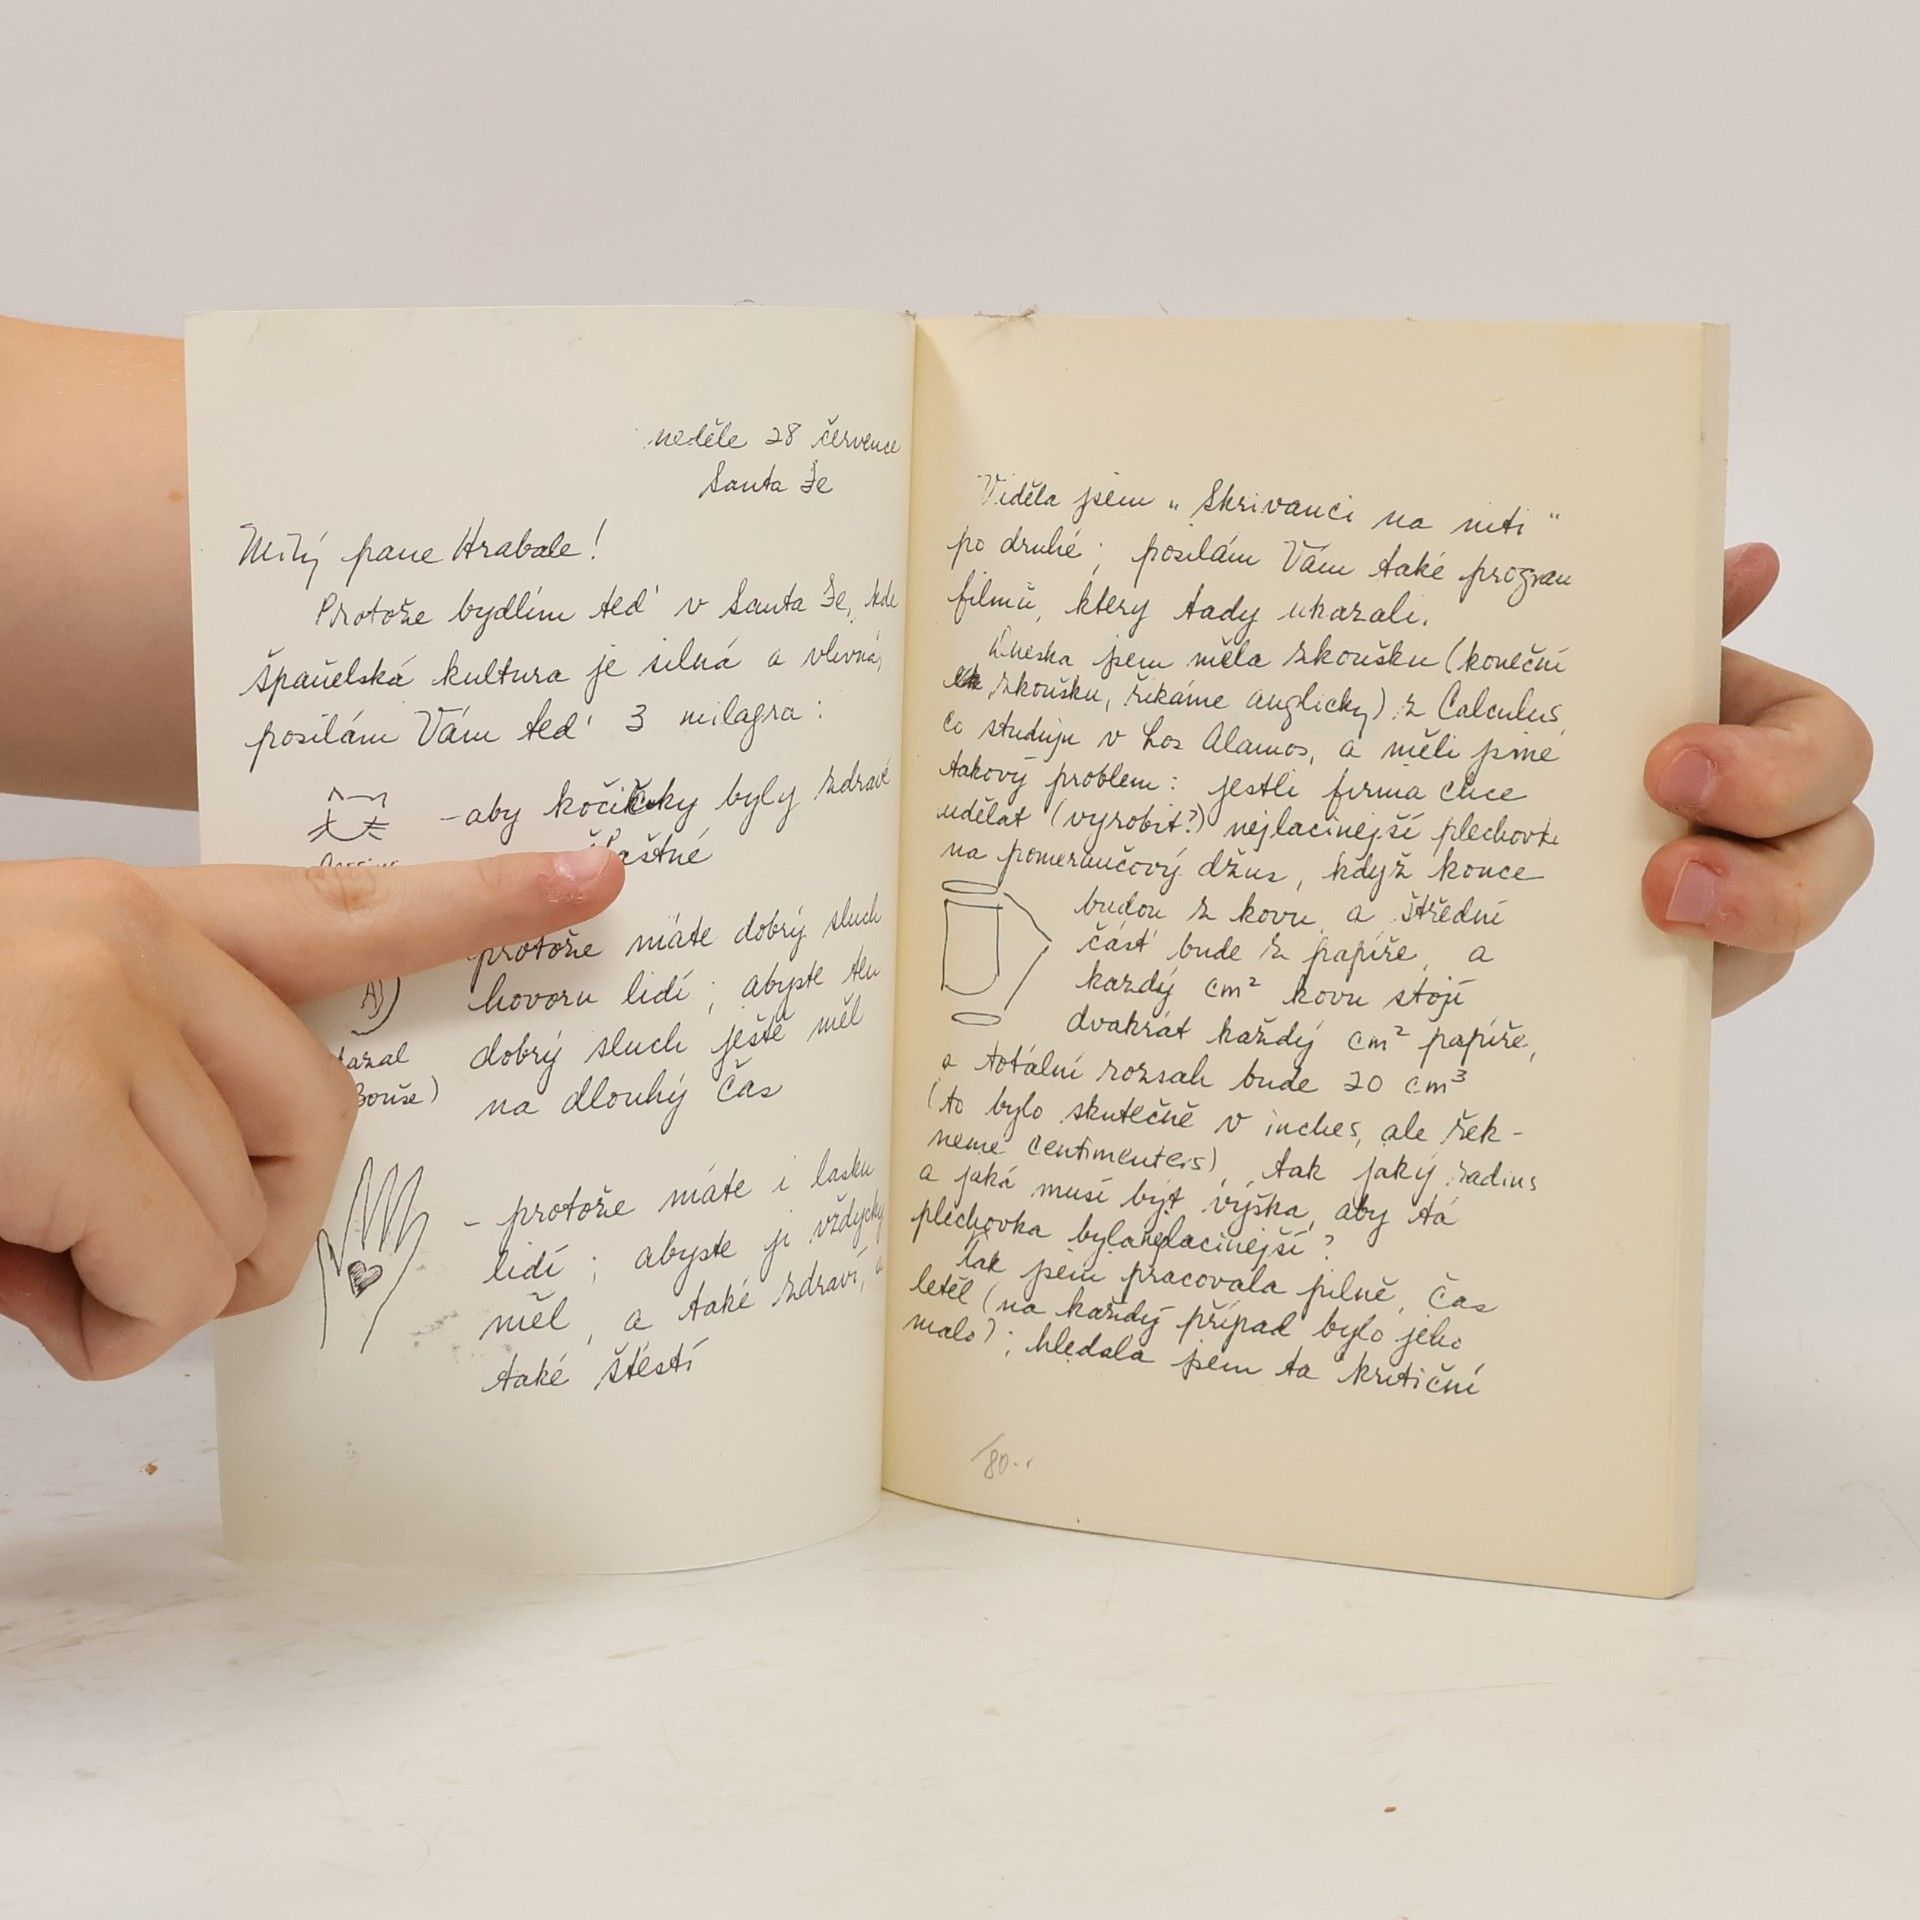 neděle 28 července
Santa Fe
Milý pane Hrabale!
Protože bydlím teď v Santa Fe, kde
španělská kultura je silná a vlivná,
posílám Vám teď 3 milagra:
- aby kočičky byly zdravé
šťastné
protože máte dobrý sluch
hovoru lidí; abyste ten
dobrý sluch ještě měl
na dlouhý čas
Bouše)
- protože máte i lasku
lidí; abyste ji vždycky
měl, a také zdraví, a
také štěstí
Viděla jsem „Skrivanci na niti“
po druhé; posílám Vám také program
filmů, ktery tady ukazali.
Dneska jsem měla zkoušku (koneční
zkoušku, řikáme anglicky) z Calculus,
co studuju v Los Alamos, a měli jsme
takový problem: jestli firma chce
udělat (vyrobit?) nejlacinejší plechovku
na pomerančový džus, když konce
budou z kovu a střední
část bude z papíře, a
kazdý cm² kovu stojí
dvakrát každý cm² papíře,
a totální rozsah bude 20 cm³
(to bylo skutečně v inches, ale řek-
neme centimenters), tak jaký radius
a jaká musí být výška, aby tá
plechovka byla nejlacinejší?
Tak jsem pracovala pilně, čas
letěl (na každý případ bylo jeho
malo); hledala jsem ta kritiční
80.-